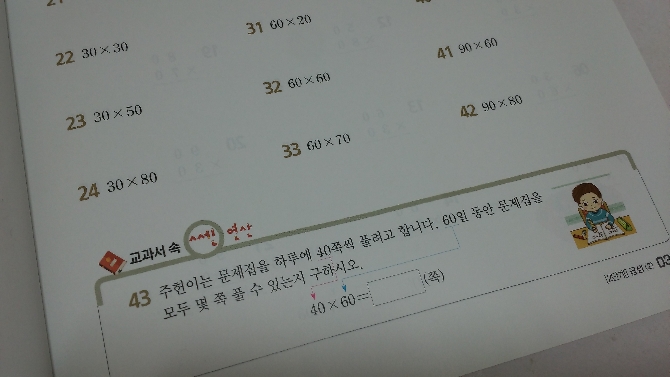 22 30×30
23 30×50
24 30×80
31 60×20
32 60×60
33 60×70
41 90×60
42 90×80
교과서 속 쎄씬 연산
43 주헌이는 문제집을 하루에 40쪽씩 풀려고 합니다. 60일 동안 문제집을
모두 몇 쪽 풀 수 있는지 구하시오.
40×60= (쪽)